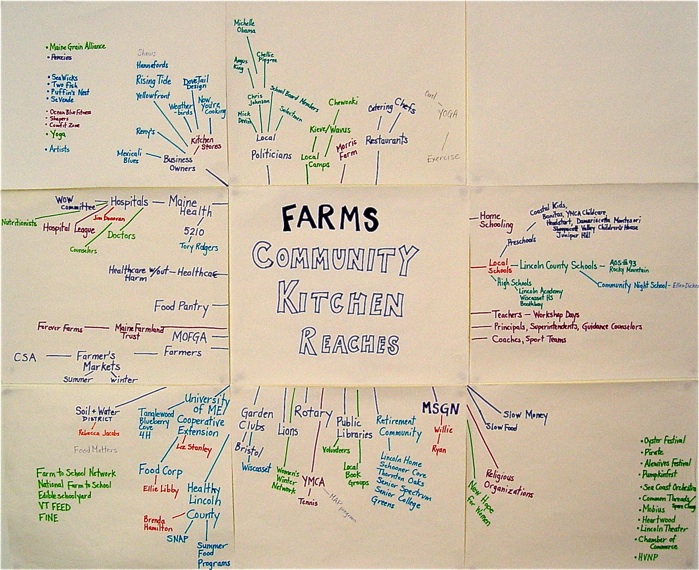 • Maine Grain Alliance
• SeaWicks
• Two Fish
• Puffin's Nest
• Ocean Blue Fitness
• Shapers
• Yoga
• Artists
Shaws
Hannafords
Rising Tide
Yellowfront
DoveTail
Design
Weather-
birds
Now
You're
Cooking
Reny's
Kitchen
Stores
Mexicali
Blues
Business
Owners
Michelle
Obama
Angus
King
Chellie
Pingree
Chris
Johnson
School Board Members
Selectmen
Mick
Devin
Local
Politicians
Chewonki
Kieve/Wavus
Local
Camps
Morris
Farm
Catering
Chefs
Restaurants
YOGA
Exercise
WOW
Committee
Hospitals
Maine
Health
Nutritionists
Jim Donovan
Hospital League
Doctors
Counselors
5210
Tory Rodgers
Healthcare w/out
Harm
Healthcare
Food Pantry
Forever Farms
Maine Farmland
Trust
MOFGA
CSA
Farmer's
Markets
Farmers
Summer
Winter
FARMS
COMMUNITY
KITCHEN
REACHES
Home
Schooling
Coastal Kids,
YMCA Childcare,
Headstart, Damariscotta Montessori
Sheepscot Valley Children's House
Juniper Hill
Preschools
Local
Schools
Lincoln County Schools
AOS #93
Rocky Mountain
High Schools
Lincoln Academy
Wiscasset HS
Boothbay
Community Night School
Ellen Dickens
Teachers - Workshop Days
Principals, Superintendents, Guidance Counselors
Coaches, Sport Teams
Soil + Water
DISTRICT
Rebecca Jacobs
Food Matters
Farm to School Network
National Farm to School
Edible schoolyard
VT FEED
FINE
Tanglewood
Blueberry
Cove
4H
University
of ME
Cooperative
Extension
Liz Stanley
Food Corp
Ellie Libby
Healthy
Lincoln
County
Brenda
Hamilton
SNAP
Summer
Food
Programs
Garden
Clubs
Bristol
Wiscasset
Lions
Women's
Winter
Network
Rotary
YMCA
Tennis
program
Public
Libraries
Volunteers
Local
Book
Groups
Retirement
Community
Lincoln Home
Schooner Cove
Thornton Oaks
Senior Spectrum
Senior College
Greens
MSGN
Willie
Ryan
Slow Money
Slow Food
Religious
Organizations
New Hope
For Women
• Oyster Festival
• Pirate
• Alewives Festival
• Pumpkinfest
• Sea Coast Orchestra
• Common Threads
• Mobius
• Heartwood
• Lincoln Theater
• Chamber of
Commerce
• HVNP